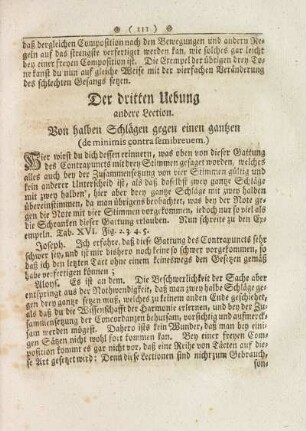 ( 111 )
daß dergleichen Composition nach den Bewegungen und andern Re-
geln auf das strengste verfertiget werden kan, wie solches gar leicht
bey einer freyen Composition ist. Die Exempel der übrigen drey To-
ne kanst du nun auf gleiche Weise mit der vierfachen Veränderung
des schlechten Gesangs setzen.
Der dritten Uebung
andere Lection.
Von halben Schlägen gegen einen gantzen
(de minimis contra semibrevem.)
Hier wirst du dich dessen erinnern, was eben von dieser Gattung
des Contrapuncts mit drey Stimmen gesaget worden, welches
alles auch bey der Zusammensetzung von vier Stimmen gültig und
kein anderer Unterscheid ist, als daß daselbst zwey gantze Schläge
mit zwey halben, hier aber drey gantze Schläge mit zwey halben
übereinstimmen, da man übrigens beobachtet, was bey der Note ge-
gen die Note mit vier Stimmen vorgekommen, jedoch nur so viel als
die Schrancken dieser Gattung erlauben. Nun schreite zu den Ex-
empeln. Tab. XVI. Fig. 2. 3 4. 5.
Joseph. Ich erfahre, daß diese Gattung des Contrapuncts sehr
schwer sey, und es ist mir bishero noch keine so schwer vorgekommen, so
daß ich den letzten Tact ohne einen keineswegs den Gesetzen gemäß
habe verfertigen können;
Aloys. Es ist an dem. Die Beschwerlichkeit der Sache aber
entspringt aus der Nothwendigkeit, daß man zwey halbe Schläge ge-
gen drey gantze setzen muß, welches zu keinem andern Ende geschiehet,
als daß du die Wissenschafft der Harmonie erlernen, und bey der Zu-
sammensetzung der Concordanzen behutsam, vorsichtig und aufmerck-
sam werden mögest. Dahero ists kein Wunder, daß man bey eini-
gen Sätzen nicht wohl fort kommen kan. Bey einer freyen Com-
position kommt es gar nicht vor, daß eine Reihe von Täcten auf die-
se Art gesetzet wird: Denn diese Lectionen sind nicht zum Gebrauch,
son-